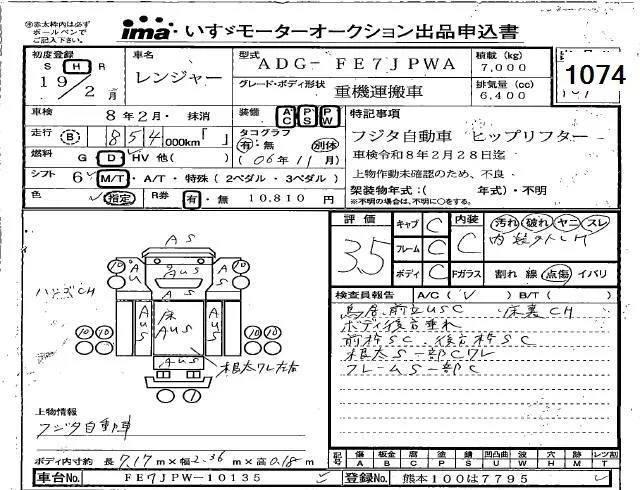 ※赤太枠内は必ず
ボールペンで
ご記入下さい。
ima いすゞモーターオークション出品申込書
初度登録 S H R 19年2月
車名 レンジャー
型式 ADG-FE7JPWA
グレード・ボディ形状 重機運搬車
積載 (kg) 7,000
排気量 (cc) 6,400
1074
車検 8年2月・抹消
装備 AC PS PW
特記事項
走行 B 854 000km「 」
タコグラフ 有:無 別体
フジタ自動車 ヒップリフター
燃料 G D HV 他( )
(06年11月)
車検令和8年2月28日迄
シフト 6 M/T・A/T・特殊(2ペダル・3ペダル)
上物作動未確認のため、不良
架装物年式:( 年式)・不明
※不明の場合は、不明に○をする。
色 指定 R券 有・無 10,810 円
評価 3.5
キャブ C
フレーム C
ボディ C
内装 C
Fガラス
汚れ 破れ ヤニ スレ
割れ 線 点傷 イバリ
検査員報告 A/C( V ) B/T( )
鳥居、前立USC 床裏CH
ボディ後方垂れ
前枠SC 後方枠SC
根太S一部Cワレ
フレームS一部C
AS
AUS
ハシゴCH
床AUS
AUS
根太ワレ左右
上物情報
フジタ自動車
ボディ内寸約 長 7.17 m×幅 2.36 m×高 0.18 m
記号 傷 A 板金 B 腐 C 塗 P 錆 S 凹凸曲 U 波 W 穴 H 昨 M レンズ割 T
車台No. FE7JPW-10135
登録No. 熊本100は7795